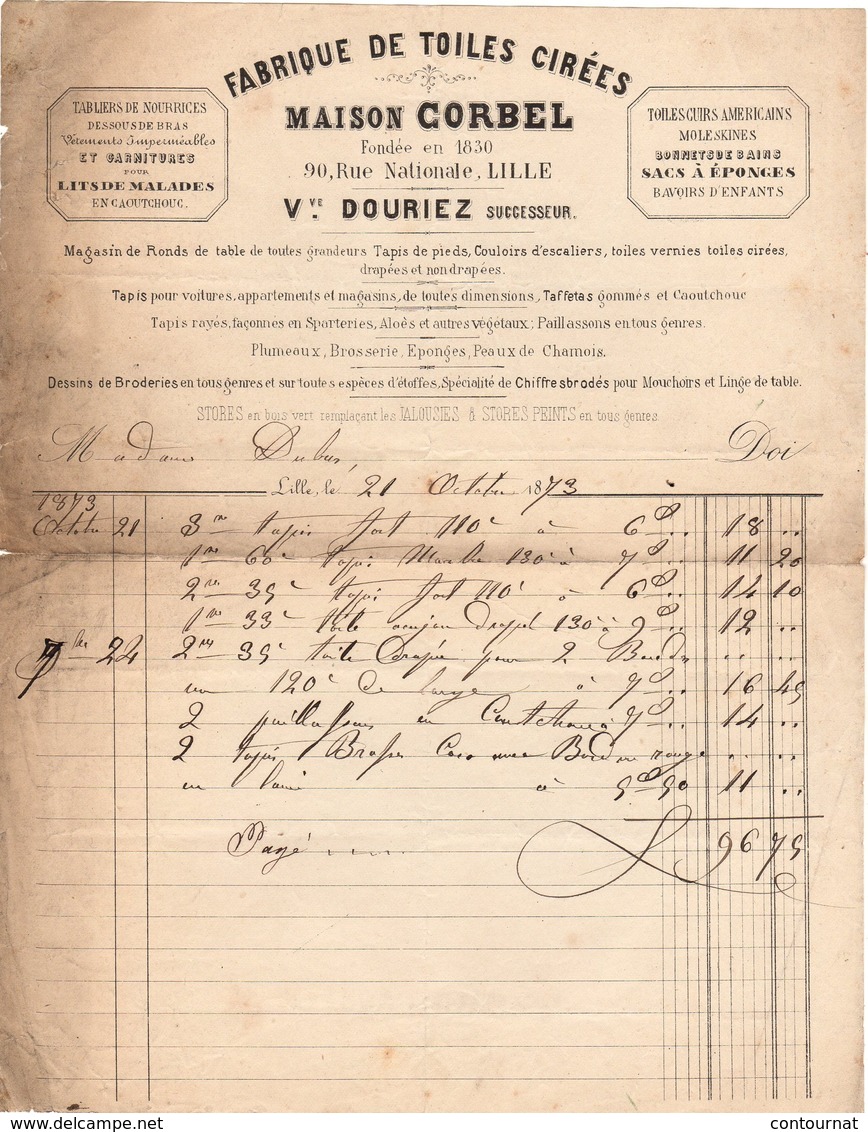 FABRIQUE DE TOILES CIRÉES
MAISON CORBEL
Fondée en 1830
90, Rue Nationale, LILLE
Vve DOURIEZ SUCCESSEUR.
TABLIERS DE NOURRICES
DESSOUS DE BRAS
Vêtements Imperméables
ET GARNITURES
POUR
LITS DE MALADES
EN CAOUTCHOUC.
TOILES CUIRS AMERICAINS
MOLESKINES
BONNETS DE BAINS
SACS À ÉPONGES
BAVOIRS D'ENFANTS
Magasin de Ronds de table de toutes grandeurs Tapis de pieds, Couloirs d'escaliers, toiles vernies toiles cirées,
drapées et non drapées.
Tapis pour voitures, appartements et magasins, de toutes dimensions, Taffetas gommés et Caoutchouc
Tapis rayés, façonnés en Sparteries, Aloës et autres végétaux; Paillassons en tous genres.
Plumeaux, Brosserie, Eponges, Peaux de Chamois.
Dessins de Broderies en tous genres et sur toutes espèces d'étoffes, Spécialité de Chiffres brodés pour Mouchoirs et Linge de table.
STORES en bois vert remplaçant les JALOUSIES & STORES PEINTS en tous genres.
Madame Dubus, Doi
Lille, le 21 Octobre 1873
1873
Octobre 21 3m tapis fort 110c à 6f .. 18 ..
1m 60c tapis 130c à 7f .. 11 20
2m 35c tapis fort 110c à 6f .. 14 10
1m 33c toile drapé 130c à 9f .. 12 ..
22 2m 35c toile Drapée pour 2
120c de large à 7f .. 16 45
2 paillassons en Caoutchouc à 7f .. 14 ..
2 tapis Coco avec Bordure rouge .. ..
en laine à 5f 50 11 ..
Payé 96 75
delcampe.net
contournat